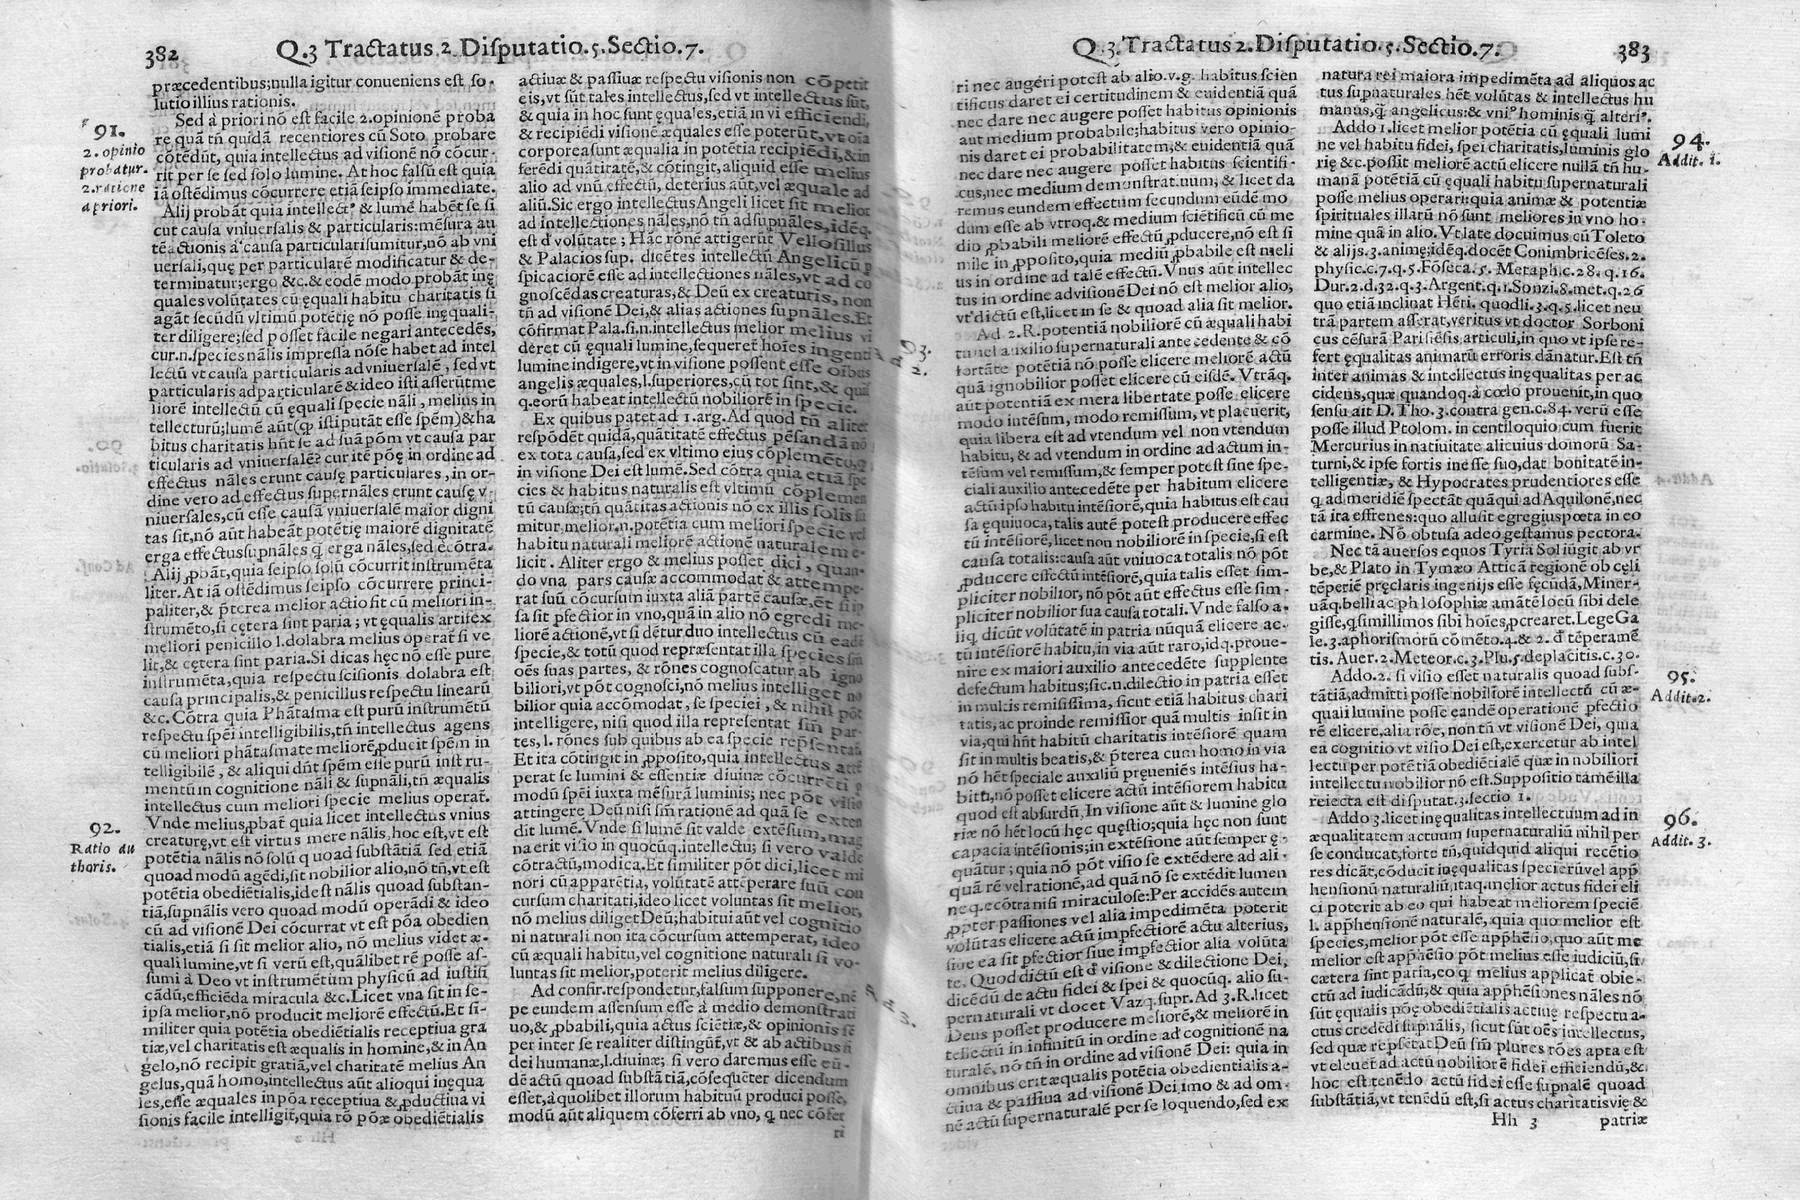 382
Q.3 Tractatus 2. Disputatio.5. Sectio.7.
præcedentibus; nulla igitur conueniens est so-
lutio illius rationis.
91.
2. opinio
probatur.
2. ratione
a priori.
Sed à priori nō est facile 2. opinionē proba
re quā tñ quidā recentiores cū Soto probare
cōtēdūt, quia intellectus ad visionē nō cōcur-
rit per se sed solo lumine. At hoc falsū est quia
iā ostēdimus cōcurrere etiā seipso immediate.
Alij probāt quia intellectꝰ & lumē habēt se si
cut causa vniuersalis & particularis: mēsura aū
tē actionis à causa particulari sumitur, nō ab vni
uersali, quę per particularē modificatur & de-
terminatur; ergo &c. & eodē modo probāt inę
quales volūtates cū ęquali habitu charitatis si
agāt secūdū vltimū potētię nō posse inęquali-
ter diligere; sed posset facile negari antecedēs,
cur .n. species nālis impressa nō se habet ad intel
lectū vt causa particularis ad vniuersalē, sed vt
particularis ad particularē & ideo isti asserūt me
liorē intellectū cū ęquali specie nāli, melius in
tellecturū; lumē aūt (qꝫ isti putāt esse spēm) & ha
bitus charitatis hñt se ad suā pōm vt causa par
ticularis ad vniuersalē? cur itē pōę in ordine ad
effectus nāles erunt causę particulares, in or-
dine vero ad effectus supernāles erunt causę v-
niuersales, cū esse causā vniuersalē maior digni
tas sit, nō aūt habeāt potētię maiorē dignitatē
erga effectus supnāles q̄ erga nāles, sed ecōtra.
Alij ꝓbāt, quia seipso solū cōcurrit instrumēta
liter. At iā ostēdimus seipso cōcurrere princi-
paliter, & p̄terea melior actio fit cū meliori in-
strumēto, si cętera sint paria; vt ęqualis artifex
meliori penicillo l. dolabra melius operat̄ si ve
lit, & cętera sint paria. Si dicas hęc nō esse pure
instrumēta, quia respectu scisionis dolabra est
causa principalis, & penicillus respectu linearū
&c. Cōtra quia Phātasma est purū instrumētū
respectu spēi intelligibilis, tñ intellectus agens
cū meliori phātasmate meliorē ꝓducit spēm in
telligibilē, & aliqui dñt spēm esse purū instru-
mentū in cognitione nāli & supnāli, tñ æqualis
intellectus cum meliori specie melius operat̄.
92.
Ratio au
thoris.
Vnde melius ꝓbat̄ quia licet intellectus vnius
creaturę, vt est virtus mere nālis, hoc est, vt est
potētia nālis nō solū quoad substātiā sed etiā
quoad modū agēdi, sit nobilior alio, nō tñ, vt est
potētia obediētialis, idest nālis quoad substan-
tiā, supnālis vero quoad modū operādi & ideo
cū ad visionē Dei cōcurrat vt est pōa obedien
tialis, etiā si sit melior alio, nō melius videt æ-
quali lumine, vt si verū est, quālibet rē posse as-
sumi à Deo vt instrumētum physicū ad iustifi
cādū, efficiēda miracula &c. Licet vna sit in se-
ipsa melior, nō producit meliorē effectū. Et si-
militer quia potētia obediētialis receptiua gra
tiæ, vel charitatis est æqualis in homine, & in An
gelo, nō recipit gratiā, vel charitatē melius An
gelus, quā homo, intellectus aūt alioqui inęqua
les, esse æquales in pōa receptiua & ꝓductiua vi
sionis facile intelligit, quia rō pōæ obediētialis
actiuæ & passiuæ respectu visionis non cōpetit
eis, vt sūt tales intellectus, sed vt intellectus sūt,
& quia in hoc sunt ęquales, etiā in vi efficiendi,
& recipiēdi visionē æquales esse poterūt, vt oīa
corporea sunt æqualia in potētia recipiēdi, & in
ferēdi quātitatē, & cōtingit, aliquid esse melius
alio ad vnū effectū, deterius aūt, vel æquale ad
aliū. Sic ergo intellectus Angeli licet sit melior
ad intellectiones nāles, nō tñ ad supnāles, idēq.
est đ volūtate; Hāc rōnē attigerūt Vellosillus
& Palacios sup. dicētes intellectū Angelicū p
spicaciorē esse ad intellectiones nāles, vt ad co
gnoscēdas creaturas, & Deū ex creaturis, non
tñ ad visionē Dei, & alias actiones supnāles. Et
cōfirmat Pala. si .n. intellectus melior melius vi
deret cū ęquali lumine, sequeret̄ hoīes ingenti
lumine indigere, vt in visione possent esse oībus
angelis æquales, l. superiores, cū tot sint, & quis
q. eorū habeat intellectū nobiliorē in specie.
Ex quibus patet ad 1. arg. Ad quod tñ aliter
respōdēt quidā, quātitatē effectus pēsandā nō
ex tota causa, sed ex vltimo eius cōplemēto, q̄
in visione Dei est lumē. Sed cōtra quia etiā spe
cies & habitus naturalis est vltimū cōplemen
tū causæ; tñ quātitas actionis nō ex illis solis su
mitur, melior .n. potētia cum meliori specie vel
habitu naturali meliorē actionē naturalē me-
licit. Aliter ergo & melius posset dici, quan-
do vna pars causæ accommodat & attempe-
rat suū cōcursum iuxta aliā partē causæ, ēt si ip
sa sit pfectior in vno, quā in alio nō egredi me-
liorē actionē, vt si dētur duo intellectus cū eadē
specie, & totū quod repræsentat illa species sm̄
oēs suas partes, & rōnes cognoscatur ab igno
biliori, vt pōt cognosci, nō melius intelliget no
bilior quia accōmodat, se speciei, & nihil pōt
intelligere, nisi quod illa represēntat sm̄ par-
tes, l. rōnes sub quibus ab ea specie rep̄sentat̄.
Et ita cōtingit in ꝓposito, quia intellectus atté
perat se lumini & essentiæ diuinæ cōcurrēti p
modū spēi iuxta mēsurā luminis; nec pōt visio
attingere Deū nisi sm̄ rationē ad quā se exten
dit lumē. Vnde si lumē sit valde extēsum, mag
na erit visio in quocūq. intellectu; si vero valde
cōtractū, modica. Et similiter pōt dici, licet mi
nori cū apparētia, volūtatē attēperare suū con
cursum charitati, ideo licet voluntas sit melior,
nō melius diliget Deū; habitui aūt vel cognitio
ni naturali non ita cōcursum attemperat, ideo
cū æquali habitu, vel cognitione naturali si vo-
luntas sit melior, poterit melius diligere.
Ad confir. respondetur, falsum supponere, nē
pe eundem assensum esse à medio demonstrati
uo, & ꝓbabili, quia actus sciētiæ, & opinionis sē
per inter se realiter distingūt̄, vt & ab actibus fi
dei humanæ, l. diuinæ; si vero daremus esse eū-
dē actū quoad substātiā, cōsequēter dicendum
esset, à quolibet illorum habituū produci posse,
modū aūt aliquem cōferri ab vno, q̄ nec cōfer
ri
Q.3. Tractatus 2. Disputatio.5. Sectio.7.
383
ri nec augeri potest ab alio. v.g. habitus scien
tificus daret ei certitudinem & euidentiā quā
nec dare nec augere posset habitus opinionis
aut medium probabile; habitus vero opinio-
nis daret ei probabilitatem, & euidentiā quā
nec dare nec augere posset habitus scientifi-
cus, nec medium demonstratiuum; & licet da
remus eundem effectum secundum eūdē mo
dum esse ab vtroq. & medium sciētificū cū me
dio ꝓbabili meliorē effectū ꝓducere, nō est si
mile in ꝓposito, quia medium ꝓbabile est meli
us in ordine ad talē effectū. Vnus aūt intellec
tus in ordine ad visionē Dei nō est melior alio,
vt dictū est, licet in se & quoad alia sit melior.
93.
Ad 2. R. potentiā nobiliorē cū æquali habi
tu vel auxilio supernaturali antecedente & cō
fortāte potētiā nō posse elicere meliorē actū
quā ignobilior posset elicere cū eisdē. Vtráq.
aūt potentiā ex mera libertate posse elicere
modo intēsum, modo remissum, vt placuerit,
quia libera est ad vtendum vel non vtendum
habitu, & ad vtendum in ordine ad actum in-
tēsum vel remissum, & semper potest sine spe-
ciali auxilio antecedēte per habitum elicere
actū ipso habitu intēsiorē, quia habitus est cau
sa equiuoca, talis autē potest producere effec
tū intēsiorē, licet non nobiliorē in specie, si est
causa totalis: causa aūt vniuoca totalis nō pōt
ꝓducere effectū intēsiorē, quia talis esset sim-
pliciter nobilior, nō pōt aūt effectus esse sim-
pliciter nobilior sua causa totali. Vnde falso a-
liq̄ dicūt volūtatē in patria nūquā elicere ac-
tū intēsiorē habitu, in via aūt raro, idq. proue-
nire ex maiori auxilio antecedēte supplente
defectum habitus; sic .n. dilectio in patria esset
in multis remisissima, sicut etiā habitus chari
tatis, ac proinde remissior quā multis insit in
via, qui hñt habitū charitatis intēsiorē quam
sit in multis beatis, & p̄terea cum homo in via
nō hēt speciale auxiliū pręueniēs intēsius ha-
bitu, nō posset elicere actū intēsiorem habitu
quod est absurdū, In visione aūt & lumine glo
riæ nō hēt locū hęc quęstio; quia hęc non sunt
capacia intēsionis; in extēsione aūt semper ę-
quātur; quia nō pōt visio se extēdere ad ali-
quā rē vel rationē, ad quā nō se extēdit lumen
neq. ecōtra nisi miraculose: Per accidēs autem
ꝓpter passiones vel alia impedimēta poterit
volūtas elicere actū impfectiorē actu alterius,
siue ea sit pfectior siue impfectior alia volūta
te. Quod dictū est đ visione & dilectione Dei,
dicēdū de actu fidei & spei & quocūq. alio su-
pernaturali vt docet Vazq. supr. Ad 3. R. licet
Deus posset producere meliorē, & meliorē in
tellectū in infinitū in ordine ad cognitionē na
turalē, nō tñ in ordine ad visionē Dei: quia in
omnibus erit æqualis potētia obedientialis a-
ctiua & passiua ad visionē Dei, imo & ad om-
nē actū supernaturalē per se loquendo, sed ex
natura rei maiora impedimēta ad aliquos ac
tus supnaturales hēt volūtas & intellectus hu
manus, q̄ angelicus: & vniꝰ hominis q̄ alteriꝰ.
94.
Addit. 1.
Addo 1. licet melior potētia cū ęquali lumi
ne vel habitu fidei, spei charitatis, luminis glo
rię &c. possit meliorē actū elicere nullā tñ hu-
manā potētiā cū ęquali habitu supernaturali
posse melius operari: quia animæ & potentiæ
spirituales illarū nō sunt meliores in vno ho-
mine quā in alio. Vt late docuimus cū Toleto
& alijs. 3. animę; idēq. docēt Conimbricēses. 2.
physic. c. 7. q. 5. Fōseca. 5. Metaph. c. 28. q. 16.
Dur. 2. d. 32. q. 3. Argent. q. 1. Sonzi. 8. met. q. 26
quo etiā inclinat Hēri. quodli. 3. q. 5. licet neu
trā partem asserat, veritus vt doctor Sorboni
cus cēsurā Parisiēsis articuli, in quo vt ipse re-
fert ęqualitas animarū erroris dānatur. Est tñ
inter animas & intellectus inęqualitas per ac
cidens, quæ quandoq. à cœlo prouenit, in quo
sensu ait D. Tho. 3. contra gen. c. 84. verū esse
posse illud Ptolom. in centiloquio cum fuerit
Mercurius in natiuitate alicuius domorū Sa-
turni, & ipse fortis in esse suo, dat bonitatē in-
telligentiæ, & Hypocrates prudentiores esse
q̄ ad meridiē spectāt quā qui ad Aquilonē, nec
tā ita effrenes: quo allusit egregius poeta in eo
carmine. Nō obtusa adeo gestamus pectora.
Nec tā auersos equos Tyria Sol iūgit ab vr
be, & Plato in Tymæo Atticā regionē ob cęli
tēperiē pręclaris ingenijs esse fęcūdā, Miner-
uāq. belli ac philosophiæ amātē locū sibi dele
gisse, q̄ simillimos sibi hoīes ꝓcrearet. Lege Ga
le. 3. aphorismorū cōmēto. 4. & 2. đ tēperamē
tis. Auer. 2. Meteor. c. 3. Plu. 5. de placitis. c. 30.
95.
Addit. 2.
Addo. 2. si visio esset naturalis quoad subs-
tātiā, admitti posse nobiliorē intellectū cū æ-
quali lumine posse eandē operationē pfectio
rē elicere, alia rōe, non tñ vt visionē Dei, quia
ea cognitio vt visio Dei est, exercetur ab intel
lectu per potētiā obediētialē quæ in nobiliori
intellectu nobilior nō est. Suppositio tamē illa
reiecta est disputat. 3. sectio 1.
96.
Addit. 3.
Addo 3. licet inęqualitas intellectuum ad in
æqualitatem actuum supernaturaliū nihil per
se conducat, forte tñ, quidquid aliqui recētio
res dicāt, cōducit inęqualitas specierū vel app̄
hensionū naturaliū, itaq. melior actus fidei eli
ci poterit ab eo qui habeat meliorem speciē
l. app̄hensionē naturalē, quia quo melior est
species, melior pōt esse app̄hēsio, quo aūt me
melior est app̄hēsio pōt melius esse iudiciū, si
cætera sint paria, eo q̄ melius applicat̄ obie-
ctū ad iudicādū, & quia app̄hēsiones nāles nō
sūt ęqualis pōę obediētialis actiuę respectu a-
ctus credēdi supnālis, sicut sūt oēs intellectus,
sed quæ rep̄sētat Deū sm̄ plures rōes apta est
vt eleuet̄ ad actū nobiliorē fidei efficiendū, &
hoc est tenēdo actū fidei esse supnālē quoad
substātiā, vt tenēdū est, si actus charitatis vię &
Hh 3
patriæ